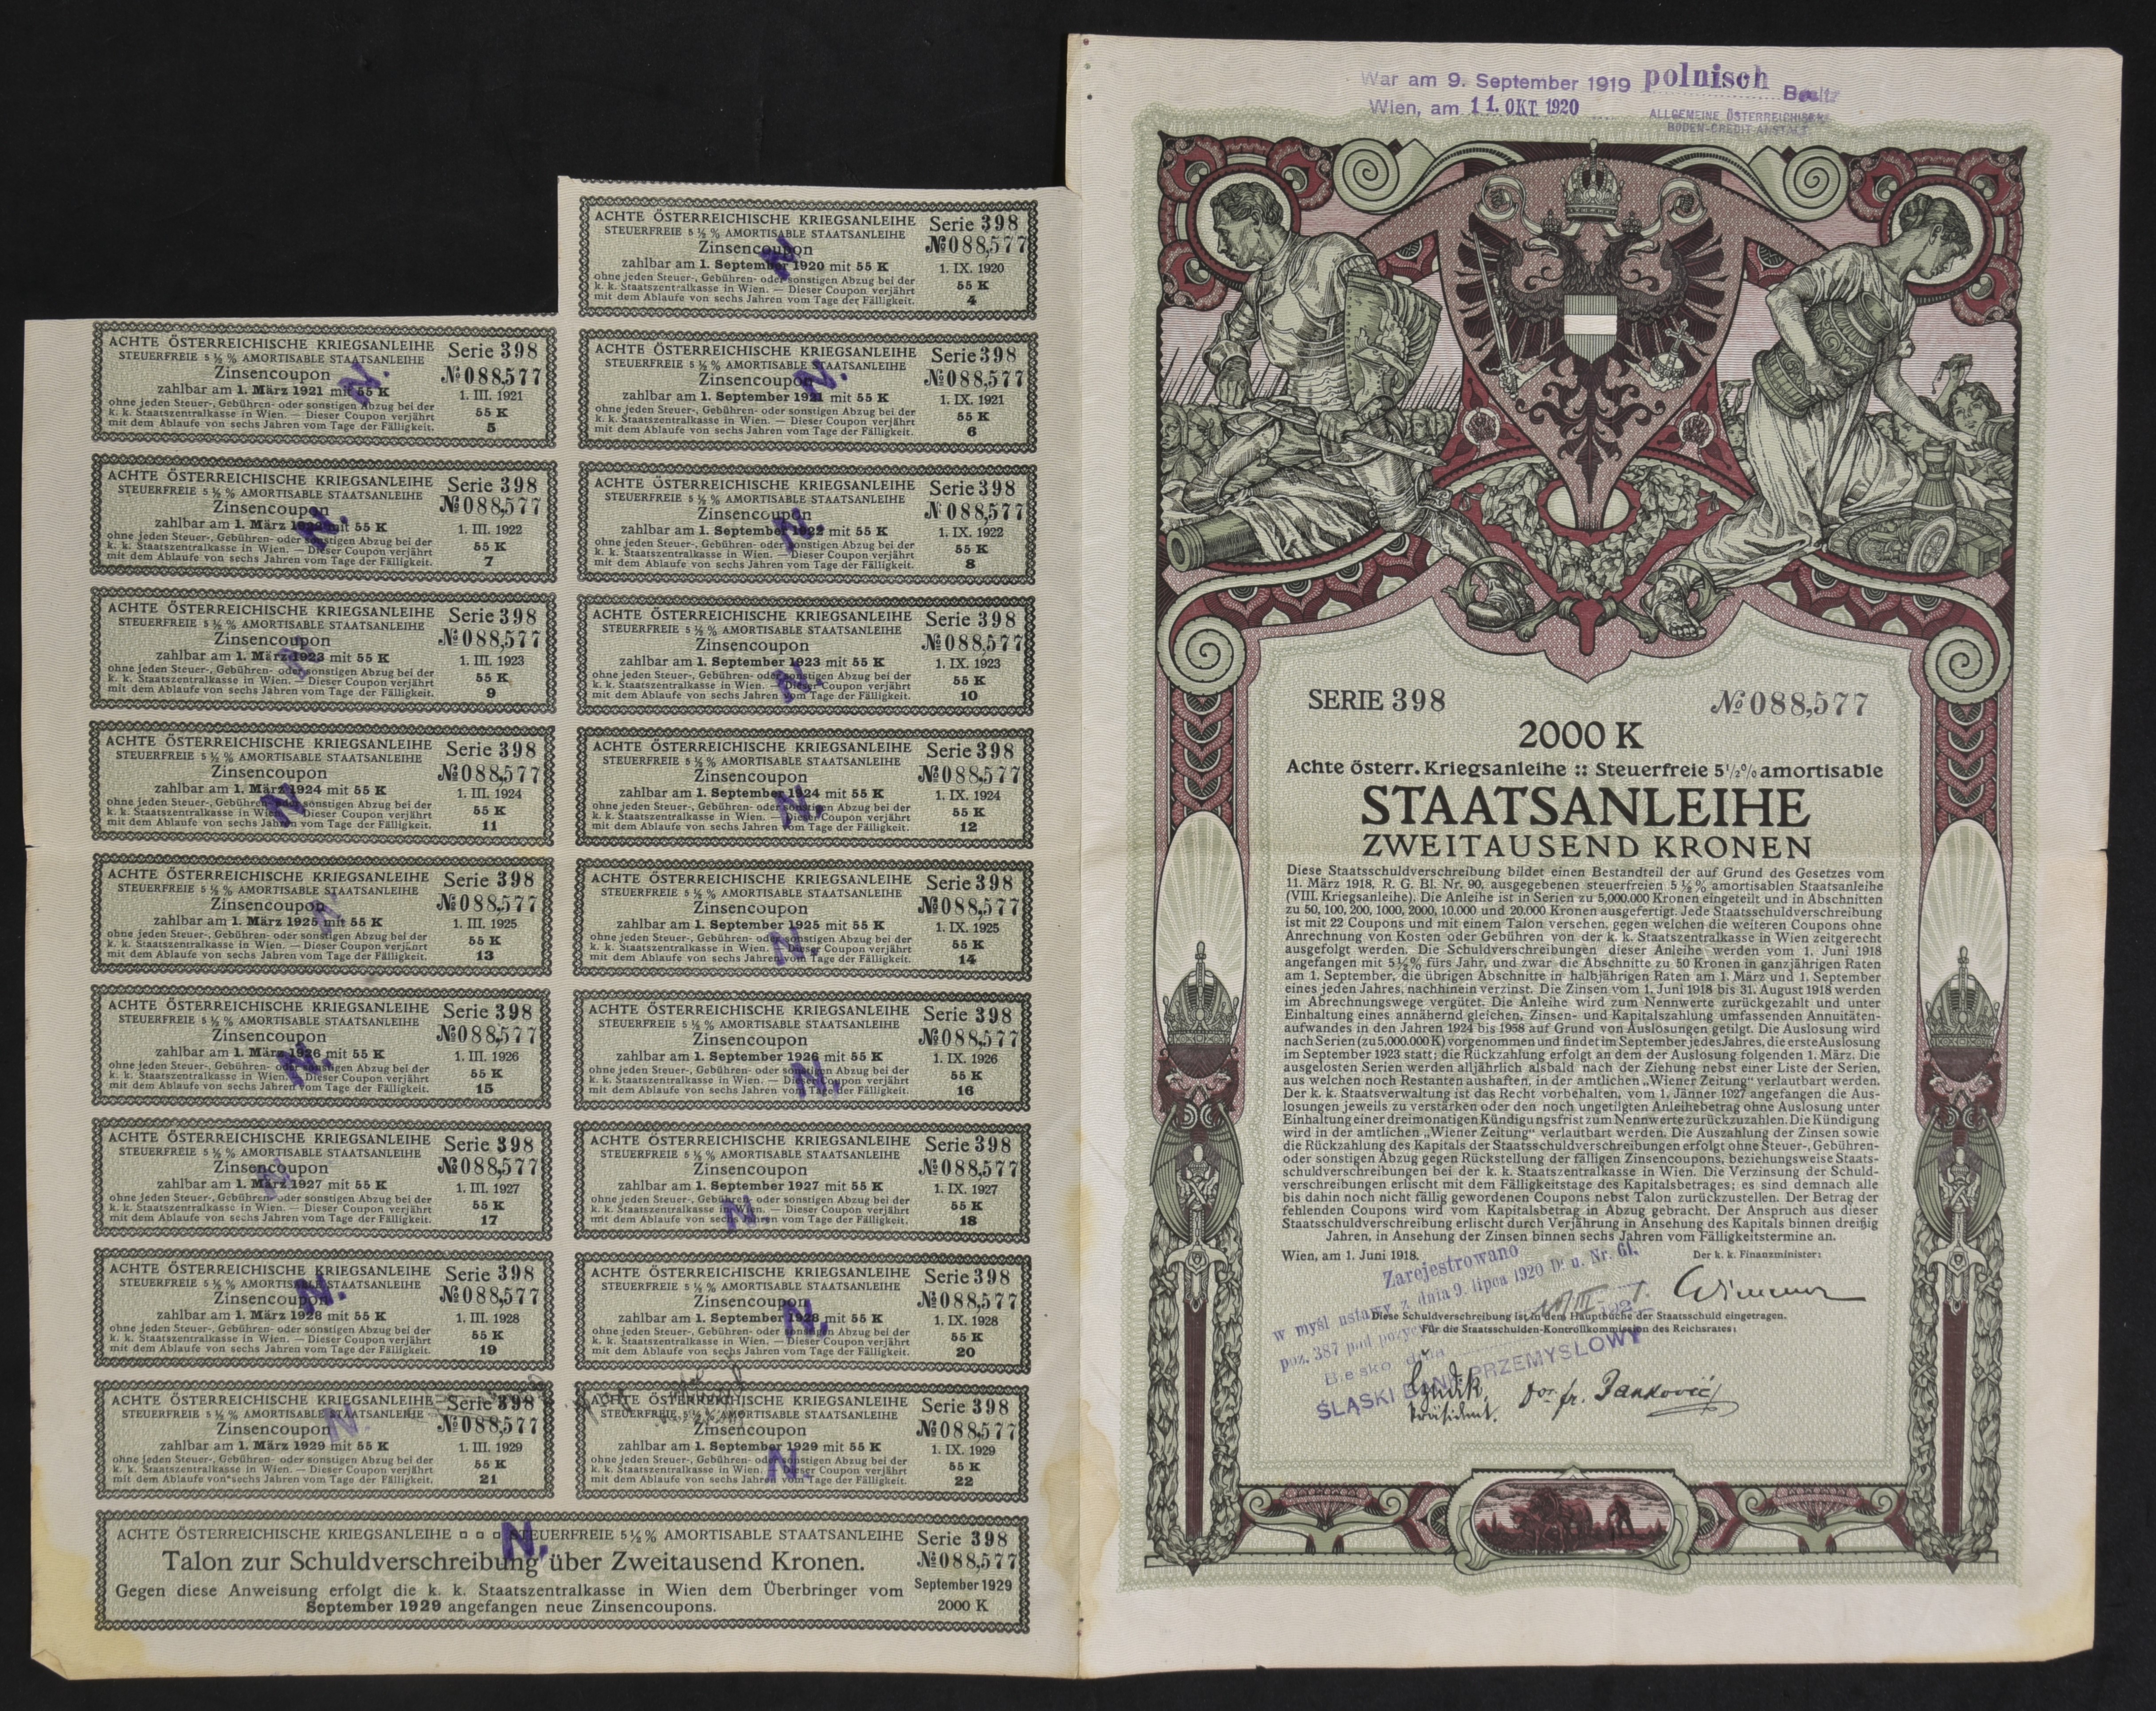 War am 9. September 1919 polnisch Besitz
Wien, am 11. OKT. 1920
ALLGEMEINE ÖSTERREICHISCHE
BODEN-CREDIT-ANSTALT
ACHTE ÖSTERREICHISCHE KRIEGSANLEIHE Serie 398
STEUERFREIE 5½% AMORTISABLE STAATSANLEIHE
Zinsencoupon № 088,577
zahlbar am 1. September 1920 mit 55 K 1. IX. 1920
ohne jeden Steuer-, Gebühren- oder sonstigen Abzug bei der
k. k. Staatszentralkasse in Wien. — Dieser Coupon verjährt 55 K
mit dem Ablaufe von sechs Jahren vom Tage der Fälligkeit. 4
N.
ACHTE ÖSTERREICHISCHE KRIEGSANLEIHE Serie 398
STEUERFREIE 5½% AMORTISABLE STAATSANLEIHE
Zinsencoupon № 088,577
zahlbar am 1. März 1921 mit 55 K 1. III. 1921
ohne jeden Steuer-, Gebühren- oder sonstigen Abzug bei der
k. k. Staatszentralkasse in Wien. — Dieser Coupon verjährt 55 K
mit dem Ablaufe von sechs Jahren vom Tage der Fälligkeit. 5
N.
ACHTE ÖSTERREICHISCHE KRIEGSANLEIHE Serie 398
STEUERFREIE 5½% AMORTISABLE STAATSANLEIHE
Zinsencoupon № 088,577
zahlbar am 1. September 1921 mit 55 K 1. IX. 1921
ohne jeden Steuer-, Gebühren- oder sonstigen Abzug bei der
k. k. Staatszentralkasse in Wien. — Dieser Coupon verjährt 55 K
mit dem Ablaufe von sechs Jahren vom Tage der Fälligkeit. 6
N.
ACHTE ÖSTERREICHISCHE KRIEGSANLEIHE Serie 398
STEUERFREIE 5½% AMORTISABLE STAATSANLEIHE
Zinsencoupon № 088,577
zahlbar am 1. März 1922 mit 55 K 1. III. 1922
ohne jeden Steuer-, Gebühren- oder sonstigen Abzug bei der
k. k. Staatszentralkasse in Wien. — Dieser Coupon verjährt 55 K
mit dem Ablaufe von sechs Jahren vom Tage der Fälligkeit. 7
N.
ACHTE ÖSTERREICHISCHE KRIEGSANLEIHE Serie 398
STEUERFREIE 5½% AMORTISABLE STAATSANLEIHE
Zinsencoupon № 088,577
zahlbar am 1. September 1922 mit 55 K 1. IX. 1922
ohne jeden Steuer-, Gebühren- oder sonstigen Abzug bei der
k. k. Staatszentralkasse in Wien. — Dieser Coupon verjährt 55 K
mit dem Ablaufe von sechs Jahren vom Tage der Fälligkeit. 8
N.
ACHTE ÖSTERREICHISCHE KRIEGSANLEIHE Serie 398
STEUERFREIE 5½% AMORTISABLE STAATSANLEIHE
Zinsencoupon № 088,577
zahlbar am 1. März 1923 mit 55 K 1. III. 1923
ohne jeden Steuer-, Gebühren- oder sonstigen Abzug bei der
k. k. Staatszentralkasse in Wien. — Dieser Coupon verjährt 55 K
mit dem Ablaufe von sechs Jahren vom Tage der Fälligkeit. 9
N.
ACHTE ÖSTERREICHISCHE KRIEGSANLEIHE Serie 398
STEUERFREIE 5½% AMORTISABLE STAATSANLEIHE
Zinsencoupon № 088,577
zahlbar am 1. September 1923 mit 55 K 1. IX. 1923
ohne jeden Steuer-, Gebühren- oder sonstigen Abzug bei der
k. k. Staatszentralkasse in Wien. — Dieser Coupon verjährt 55 K
mit dem Ablaufe von sechs Jahren vom Tage der Fälligkeit. 10
N.
ACHTE ÖSTERREICHISCHE KRIEGSANLEIHE Serie 398
STEUERFREIE 5½% AMORTISABLE STAATSANLEIHE
Zinsencoupon № 088,577
zahlbar am 1. März 1924 mit 55 K 1. III. 1924
ohne jeden Steuer-, Gebühren- oder sonstigen Abzug bei der
k. k. Staatszentralkasse in Wien. — Dieser Coupon verjährt 55 K
mit dem Ablaufe von sechs Jahren vom Tage der Fälligkeit. 11
N.
ACHTE ÖSTERREICHISCHE KRIEGSANLEIHE Serie 398
STEUERFREIE 5½% AMORTISABLE STAATSANLEIHE
Zinsencoupon № 088,577
zahlbar am 1. September 1924 mit 55 K 1. IX. 1924
ohne jeden Steuer-, Gebühren- oder sonstigen Abzug bei der
k. k. Staatszentralkasse in Wien. — Dieser Coupon verjährt 55 K
mit dem Ablaufe von sechs Jahren vom Tage der Fälligkeit. 12
N.
ACHTE ÖSTERREICHISCHE KRIEGSANLEIHE Serie 398
STEUERFREIE 5½% AMORTISABLE STAATSANLEIHE
Zinsencoupon № 088,577
zahlbar am 1. März 1925 mit 55 K 1. III. 1925
ohne jeden Steuer-, Gebühren- oder sonstigen Abzug bei der
k. k. Staatszentralkasse in Wien. — Dieser Coupon verjährt 55 K
mit dem Ablaufe von sechs Jahren vom Tage der Fälligkeit. 13
N.
ACHTE ÖSTERREICHISCHE KRIEGSANLEIHE Serie 398
STEUERFREIE 5½% AMORTISABLE STAATSANLEIHE
Zinsencoupon № 088,577
zahlbar am 1. September 1925 mit 55 K 1. IX. 1925
ohne jeden Steuer-, Gebühren- oder sonstigen Abzug bei der
k. k. Staatszentralkasse in Wien. — Dieser Coupon verjährt 55 K
mit dem Ablaufe von sechs Jahren vom Tage der Fälligkeit. 14
N.
ACHTE ÖSTERREICHISCHE KRIEGSANLEIHE Serie 398
STEUERFREIE 5½% AMORTISABLE STAATSANLEIHE
Zinsencoupon № 088,577
zahlbar am 1. März 1926 mit 55 K 1. III. 1926
ohne jeden Steuer-, Gebühren- oder sonstigen Abzug bei der
k. k. Staatszentralkasse in Wien. — Dieser Coupon verjährt 55 K
mit dem Ablaufe von sechs Jahren vom Tage der Fälligkeit. 15
N.
ACHTE ÖSTERREICHISCHE KRIEGSANLEIHE Serie 398
STEUERFREIE 5½% AMORTISABLE STAATSANLEIHE
Zinsencoupon № 088,577
zahlbar am 1. September 1926 mit 55 K 1. IX. 1926
ohne jeden Steuer-, Gebühren- oder sonstigen Abzug bei der
k. k. Staatszentralkasse in Wien. — Dieser Coupon verjährt 55 K
mit dem Ablaufe von sechs Jahren vom Tage der Fälligkeit. 16
N.
ACHTE ÖSTERREICHISCHE KRIEGSANLEIHE Serie 398
STEUERFREIE 5½% AMORTISABLE STAATSANLEIHE
Zinsencoupon № 088,577
zahlbar am 1. März 1927 mit 55 K 1. III. 1927
ohne jeden Steuer-, Gebühren- oder sonstigen Abzug bei der
k. k. Staatszentralkasse in Wien. — Dieser Coupon verjährt 55 K
mit dem Ablaufe von sechs Jahren vom Tage der Fälligkeit. 17
N.
ACHTE ÖSTERREICHISCHE KRIEGSANLEIHE Serie 398
STEUERFREIE 5½% AMORTISABLE STAATSANLEIHE
Zinsencoupon № 088,577
zahlbar am 1. September 1927 mit 55 K 1. IX. 1927
ohne jeden Steuer-, Gebühren- oder sonstigen Abzug bei der
k. k. Staatszentralkasse in Wien. — Dieser Coupon verjährt 55 K
mit dem Ablaufe von sechs Jahren vom Tage der Fälligkeit. 18
N.
ACHTE ÖSTERREICHISCHE KRIEGSANLEIHE Serie 398
STEUERFREIE 5½% AMORTISABLE STAATSANLEIHE
Zinsencoupon № 088,577
zahlbar am 1. März 1928 mit 55 K 1. III. 1928
ohne jeden Steuer-, Gebühren- oder sonstigen Abzug bei der
k. k. Staatszentralkasse in Wien. — Dieser Coupon verjährt 55 K
mit dem Ablaufe von sechs Jahren vom Tage der Fälligkeit. 19
N.
ACHTE ÖSTERREICHISCHE KRIEGSANLEIHE Serie 398
STEUERFREIE 5½% AMORTISABLE STAATSANLEIHE
Zinsencoupon № 088,577
zahlbar am 1. September 1928 mit 55 K 1. IX. 1928
ohne jeden Steuer-, Gebühren- oder sonstigen Abzug bei der
k. k. Staatszentralkasse in Wien. — Dieser Coupon verjährt 55 K
mit dem Ablaufe von sechs Jahren vom Tage der Fälligkeit. 20
N.
ACHTE ÖSTERREICHISCHE KRIEGSANLEIHE Serie 398
STEUERFREIE 5½% AMORTISABLE STAATSANLEIHE
Zinsencoupon № 088,577
zahlbar am 1. März 1929 mit 55 K 1. III. 1929
ohne jeden Steuer-, Gebühren- oder sonstigen Abzug bei der
k. k. Staatszentralkasse in Wien. — Dieser Coupon verjährt 55 K
mit dem Ablaufe von sechs Jahren vom Tage der Fälligkeit. 21
N.
ACHTE ÖSTERREICHISCHE KRIEGSANLEIHE Serie 398
STEUERFREIE 5½% AMORTISABLE STAATSANLEIHE
Zinsencoupon № 088,577
zahlbar am 1. September 1929 mit 55 K 1. IX. 1929
ohne jeden Steuer-, Gebühren- oder sonstigen Abzug bei der
k. k. Staatszentralkasse in Wien. — Dieser Coupon verjährt 55 K
mit dem Ablaufe von sechs Jahren vom Tage der Fälligkeit. 22
N.
ACHTE ÖSTERREICHISCHE KRIEGSANLEIHE STEUERFREIE 5½% AMORTISABLE STAATSANLEIHE Serie 398
Talon zur Schuldverschreibung über Zweitausend Kronen. № 088,577
Gegen diese Anweisung erfolgt die k. k. Staatszentralkasse in Wien dem Überbringer vom September 1929
September 1929 angefangen neue Zinsencoupons. 2000 K
N.
SERIE 398 № 088,577
2000 K
Achte österr. Kriegsanleihe :: Steuerfreie 5½% amortisable
STAATSANLEIHE
ZWEITAUSEND KRONEN
Diese Staatsschuldverschreibung bildet einen Bestandteil der auf Grund des Gesetzes vom
11. März 1918, R. G. Bl. Nr. 90, ausgegebenen steuerfreien 5½% amortisablen Staatsanleihe
(VIII. Kriegsanleihe). Die Anleihe ist in Serien zu 5,000.000 Kronen eingeteilt und in Abschnitten
zu 50, 100, 200, 1000, 2000, 10.000 und 20.000 Kronen ausgefertigt. Jede Staatsschuldverschreibung
ist mit 22 Coupons und mit einem Talon versehen, gegen welchen die weiteren Coupons ohne
Anrechnung von Kosten oder Gebühren von der k. k. Staatszentralkasse in Wien zeitgerecht
ausgefolgt werden. Die Schuldverschreibungen dieser Anleihe werden vom 1. Juni 1918
angefangen mit 5½% fürs Jahr, und zwar die Abschnitte zu 50 Kronen in ganzjährigen Raten
am 1. September, die übrigen Abschnitte in halbjährigen Raten am 1. März und 1. September
eines jeden Jahres, nachhinein verzinst. Die Zinsen vom 1. Juni 1918 bis 31. August 1918 werden
im Abrechnungswege vergütet. Die Anleihe wird zum Nennwerte zurückgezahlt und unter
Einhaltung eines annähernd gleichen, Zinsen- und Kapitalszahlung umfassenden Annuitäten-
aufwandes in den Jahren 1924 bis 1958 auf Grund von Auslosungen getilgt. Die Auslosung wird
nach Serien (zu 5,000.000 K) vorgenommen und findet im September jedes Jahres, die erste Auslosung
im September 1923 statt; die Rückzahlung erfolgt an dem der Auslosung folgenden 1. März. Die
ausgelosten Serien werden alljährlich alsbald nach der Ziehung nebst einer Liste der Serien,
aus welchen noch Restanten aushaften, in der amtlichen „Wiener Zeitung“ verlautbart werden.
Der k. k. Staatsverwaltung ist das Recht vorbehalten, vom 1. Jänner 1927 angefangen die Aus-
losungen jeweils zu verstärken oder den noch ungetilgten Anleihebetrag ohne Auslosung unter
Einhaltung einer dreimonatigen Kündigungsfrist zum Nennwerte zurückzuzahlen. Die Kündigung
wird in der amtlichen „Wiener Zeitung“ verlautbart werden. Die Auszahlung der Zinsen sowie
die Rückzahlung des Kapitals der Staatsschuldverschreibungen erfolgt ohne Steuer-, Gebühren-
oder sonstigen Abzug gegen Rückstellung der fälligen Zinsencoupons, beziehungsweise Staats-
schuldverschreibungen bei der k. k. Staatszentralkasse in Wien. Die Verzinsung der Schuld-
verschreibungen erlischt mit dem Fälligkeitstage des Kapitalsbetrages; es sind demnach alle
bis dahin noch nicht fällig gewordenen Coupons nebst Talon zurückzustellen. Der Betrag der
fehlenden Coupons wird vom Kapitalsbetrag in Abzug gebracht. Der Anspruch aus dieser
Staatsschuldverschreibung erlischt durch Verjährung in Ansehung des Kapitals binnen dreißig
Jahren, in Ansehung der Zinsen binnen sechs Jahren vom Fälligkeitstermine an.
Wien, am 1. Juni 1918. Der k. k. Finanzminister:
Wimmer
Zarejestrowano
w myśl ustawy z dnia 9. lipca 1920 D. u. Nr. 61.
poz. 387 pod pozycy
Bielsko dnia 192
ŚLĄSKI BANK PRZEMYSŁOWY
Diese Schuldverschreibung ist in dem Hauptbuche der Staatsschuld eingetragen.
Für die Staatsschulden-Kontrollkommission des Reichsrates:
Präsident. Dor fr. Janković